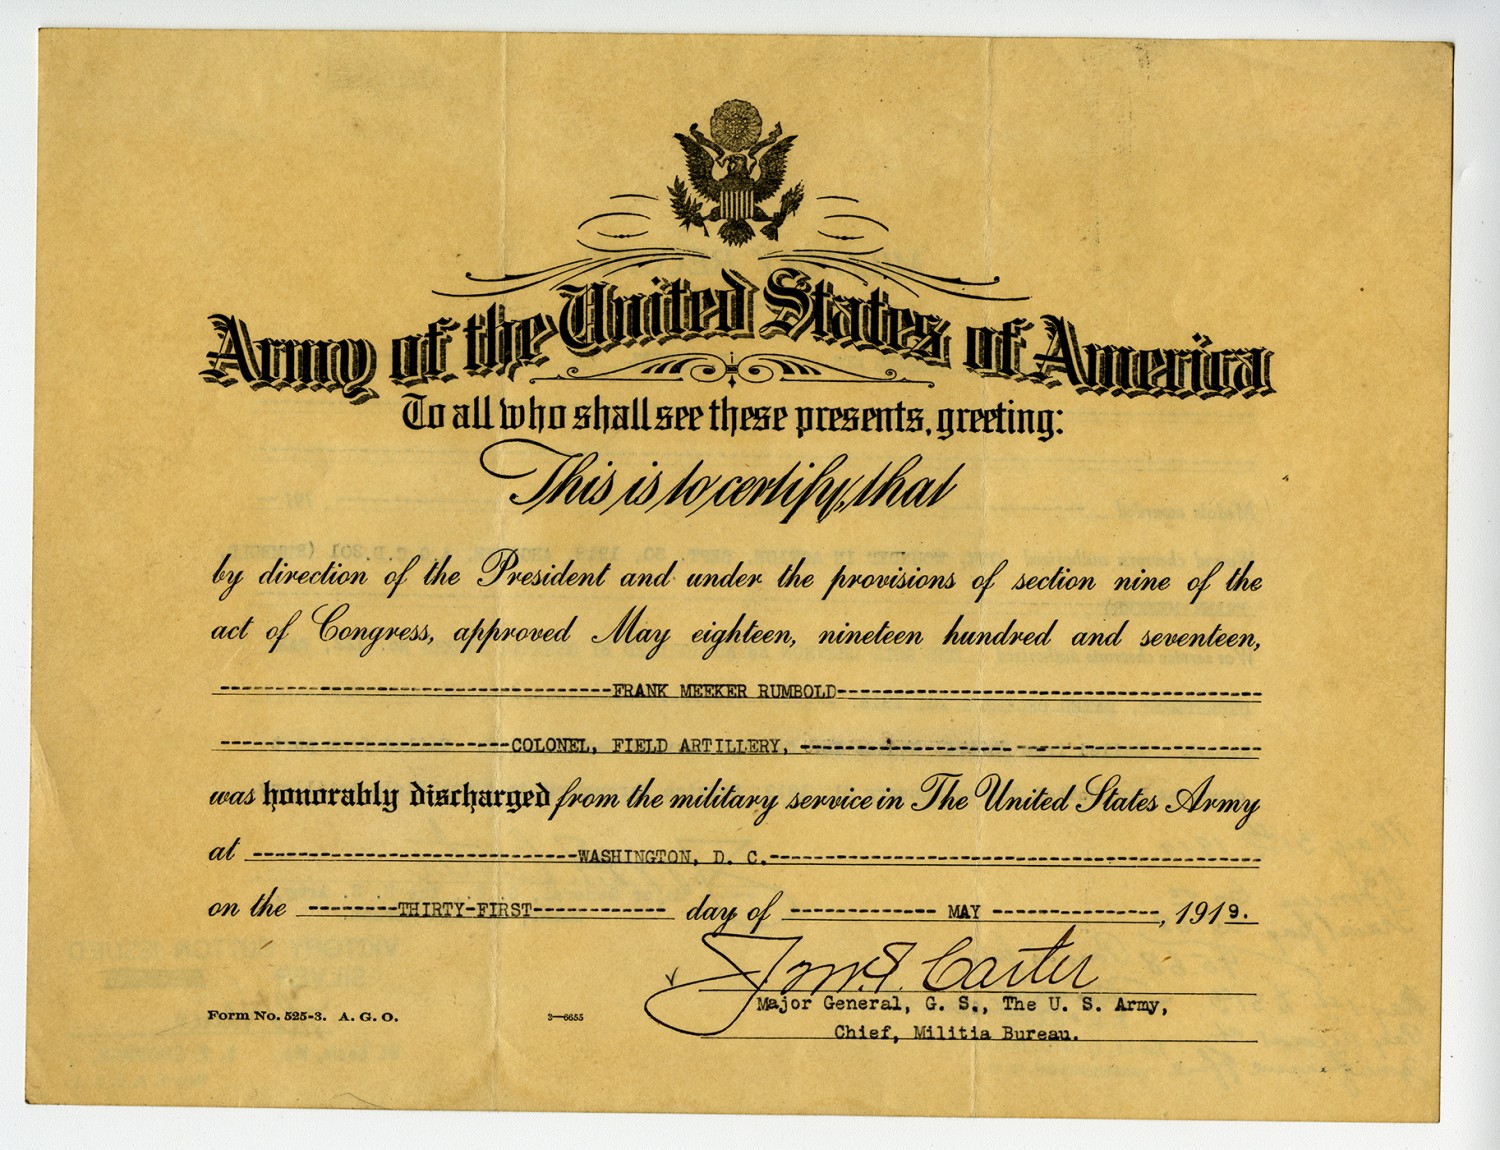 Army of the United States of America
To all who shall see these presents, greeting:
This is to certify, that
by direction of the President and under the provisions of section nine of the
act of Congress, approved May eighteen, nineteen hundred and seventeen,
FRANK MEEKER RUMBOLD
COLONEL, FIELD ARTILLERY,
was honorably discharged from the military service in The United States Army
at WASHINGTON, D. C.
on the THIRTY-FIRST day of MAY, 1919.
Carter
Major General, G. S., The U. S. Army,
Chief, Militia Bureau.
Form No. 525-3. A. G. O.
3—6655